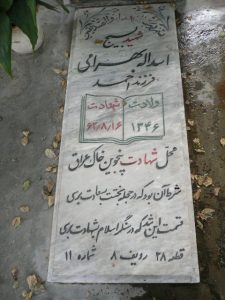 شهید بسیج
اسداله بهرامی
فرزند احمد
ولادت
۱۳۴۶
شهادت
۶۲/۸/۱۶
محل شهادت پنجوین خاک عراق
شرط آن بود که در حجله بختت
قسمت این شد که در سنگر اسلام شهادت بدی
قطعه ۲۸ ردیف ۸ شماره ۱۱